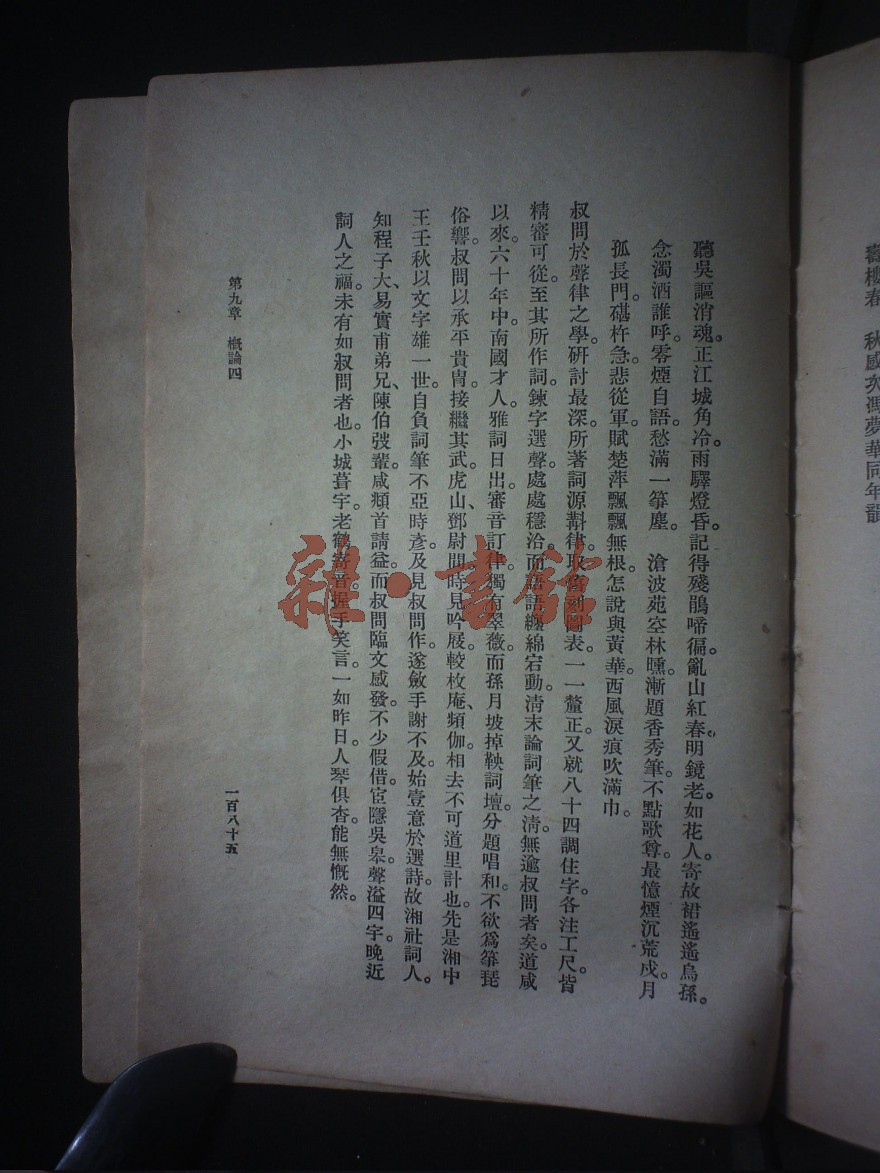 舊樓春 秋感次馮夢華同年韻
聽吳謳消魂。正江城角冷。雨驛燈昏。記得殘鵑啼徧。亂山紅春。明鏡老。如花人。寄故裙遙遙烏孫。
念濁酒誰呼。零煙自語。愁滿一箏塵。 滄波苑空林曛。漸題香秀筆。不點歌尊。最憶煙沉荒戍。月
孤長門。碪杵急。悲從軍。賦楚萍飄飄無根。怎說與黃華。西風淚痕吹滿巾。
叔問於聲律之學。研討最深。所著詞源斠律。取舊刻圖表。一一釐正。又就八十四調住字。各注工尺。皆
精審可從。至其所作詞。鍊字選聲。處處穩洽。而語語纏綿宕動。清末論詞筆之清。無逾叔問者矣。道咸
以來。六十年中。南國才人。雅詞日出。審音訂律。獨有翠薇。而孫月坡掉鞅詞壇。分題唱和。不欲爲箏琵
俗響。叔問以承平貴胄。接繼其武。虎山、鄧尉間。時見吟屐。較枚庵、頻伽。相去不可道里計也。先是湘中
王壬秋以文字雄一世。自負詞筆不亞時彥。及見叔問作。遂斂手謝不及。始壹意於選詩。故湘社詞人。
知程子大、易實甫弟兄、陳伯弢輩。咸頫首請益。而叔問臨文感發。不少假借。宦隱吳皋。聲溢四字。晚近
詞人之福。未有如叔問者也。小城葺宇。老鶴寄音。握手笑言。一如昨日。人琴俱杳。能無慨然。
第九章 概論四
一百八十五
雜·書館